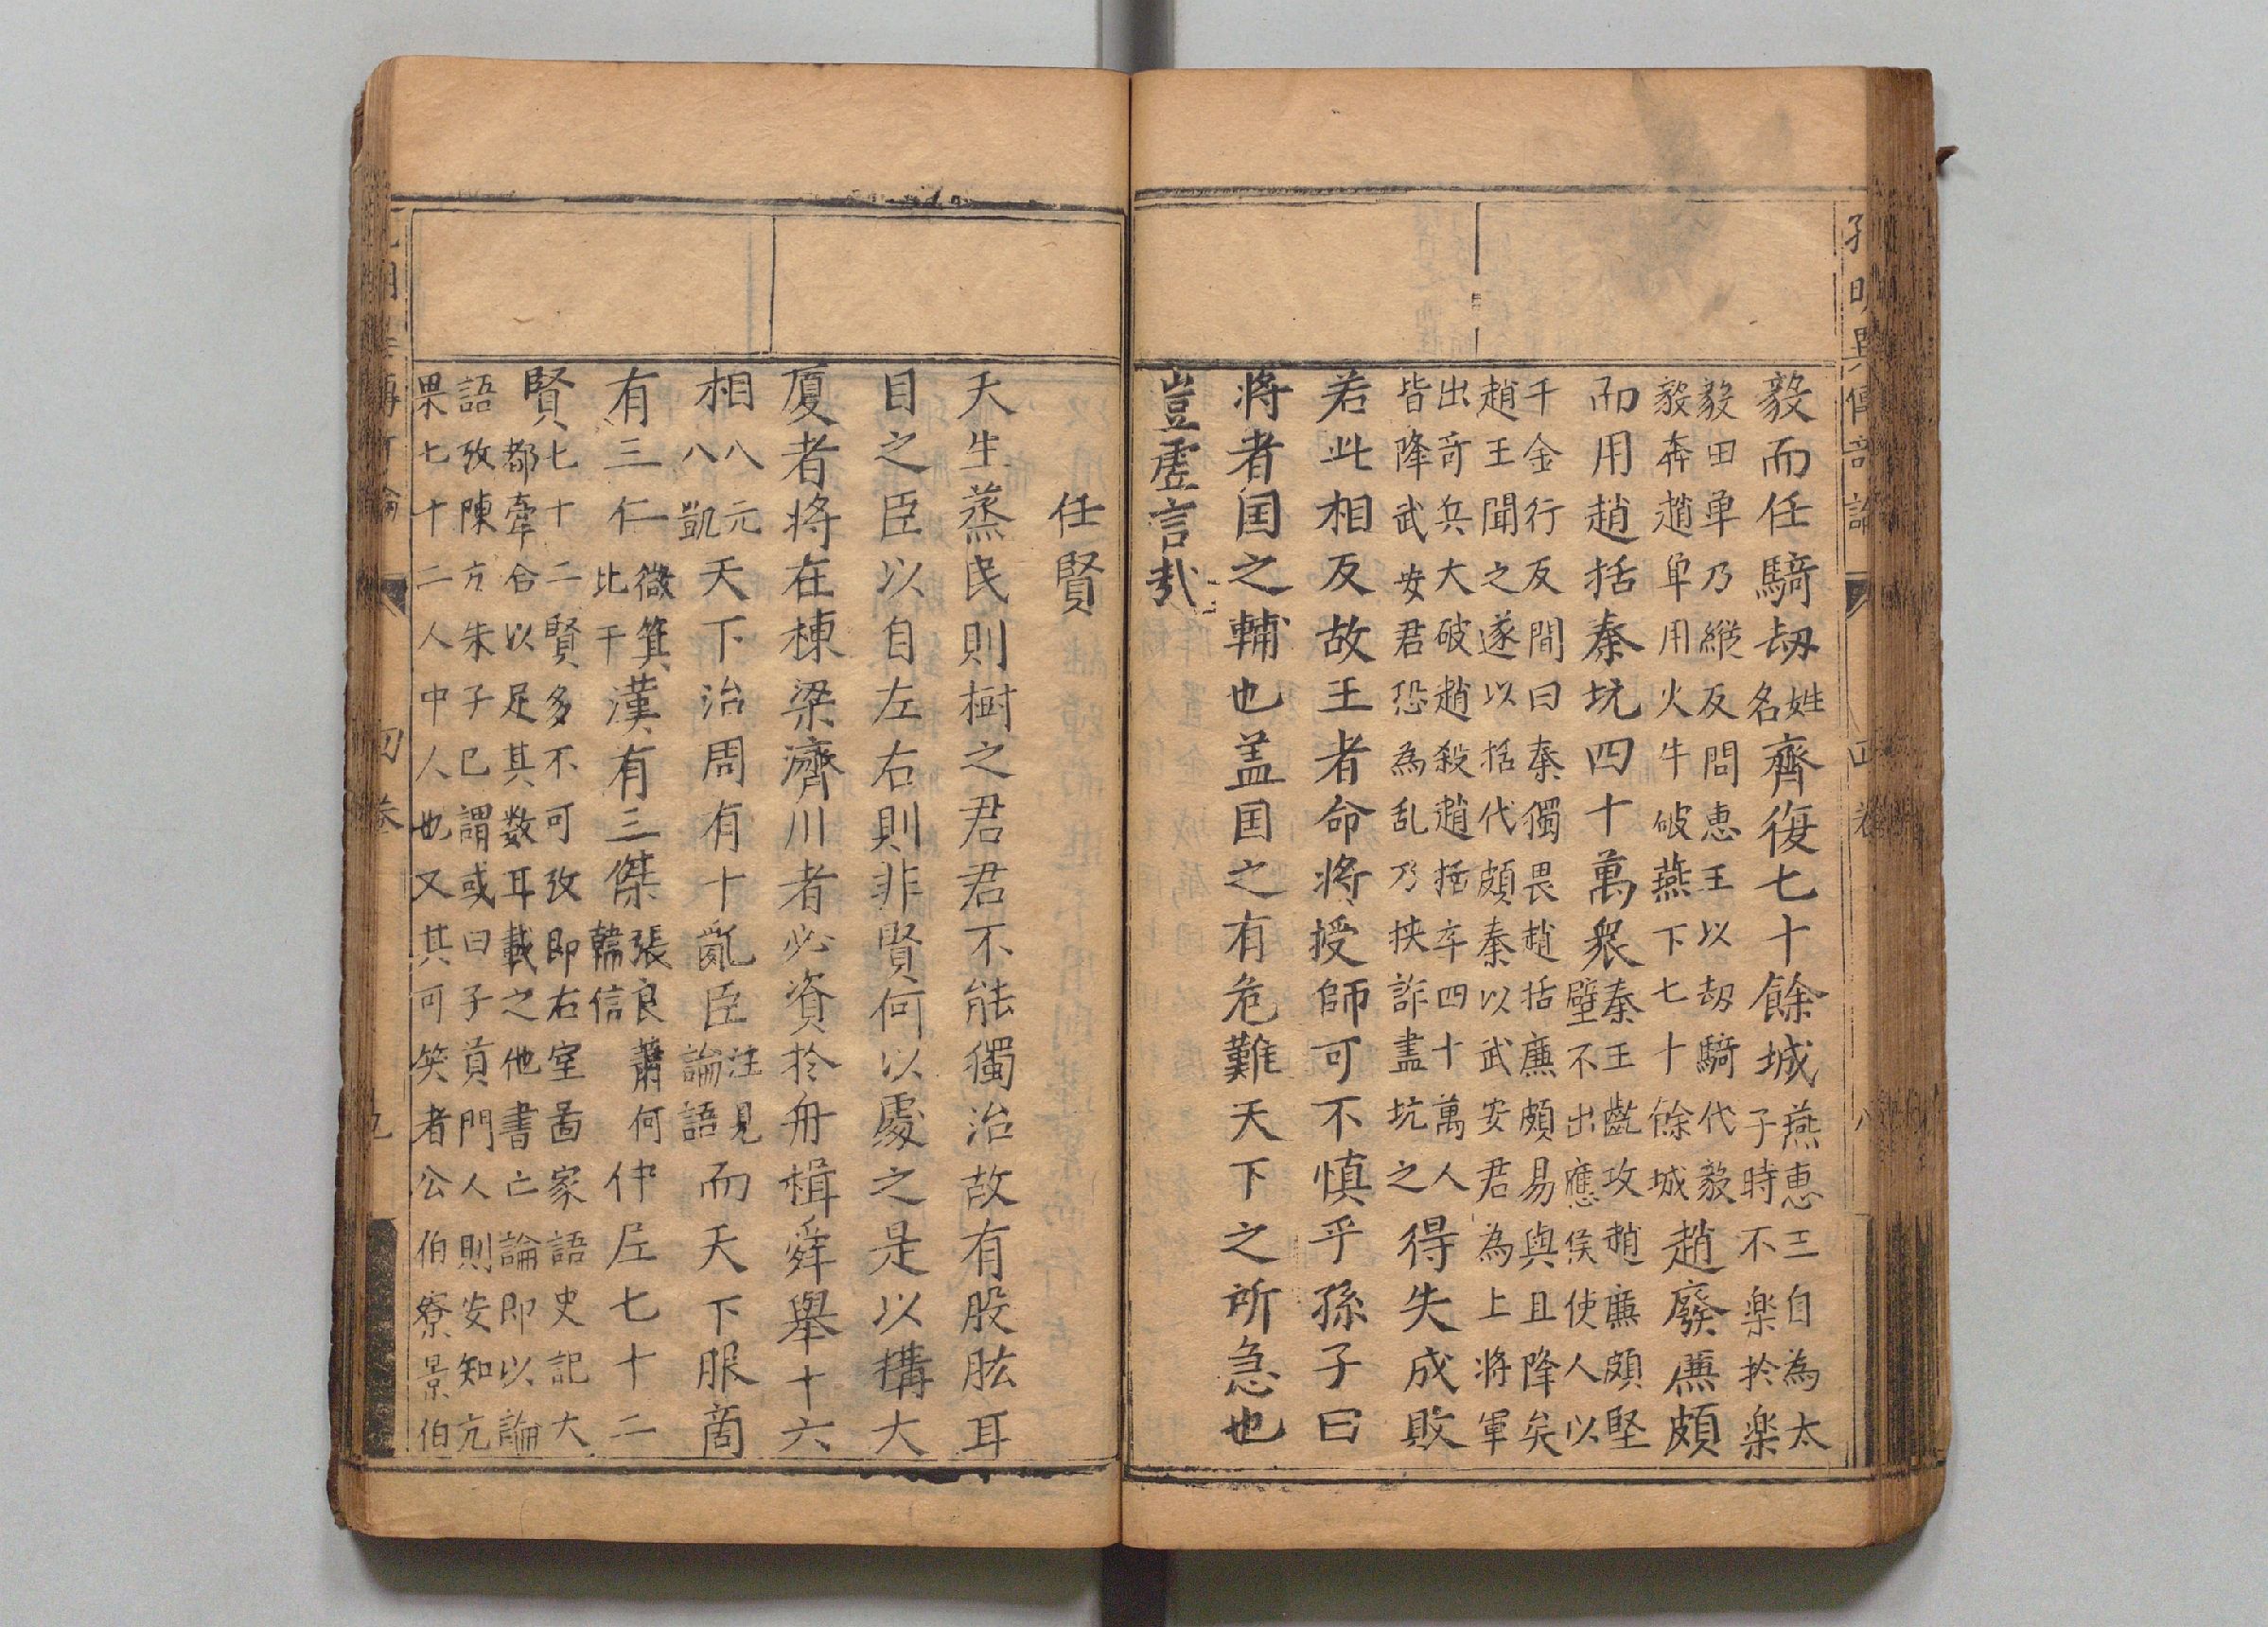 毅而任騎刼姓名齊復七十餘城燕惠王自為太子時不楽於楽
毅田單乃縱反間惠王以刼騎代毅毅奔趙單用火牛破燕下七十餘城趙廢廉頗
而用趙括秦坑四十萬衆秦王齕攻趙廉頗堅壁不出應侯使人以
千金行反間曰秦獨畏趙括廉頗易與且降矣趙王聞之遂以括代頗秦以武安君為上將軍
出奇兵大破趙殺趙括卒四十萬人皆降武安君恐為乱乃挾詐盡坑之得失成敗
若此相反故王者命將授師可不慎乎孫子曰
將者囯之輔也盖囯之有危難天下之所急也
豈虛言哉
任賢
天生蒸民則樹之君君不能獨治故有股肱耳
目之臣以自左右則非賢何以處之是以搆大
厦者將在棟梁濟川者必資於舟楫舜舉十六
相八元八凱天下治周有十亂臣注見論語而天下服啇
有三仁微箕比干漢有三傑張良蕭何韓信仲尼七十二
賢七十二賢多不可攷即右室啚家語史記大都牽合以足其数耳載之他書亡論即以論
語攷陳亢朱子已謂或曰子貢門人則安知亢果七十二人中人也又其可笑者公伯寮景伯